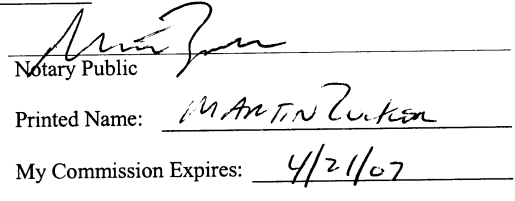 Notary Public
Printed Name: MARTIN Zucker
My Commission Expires: 4/21/07